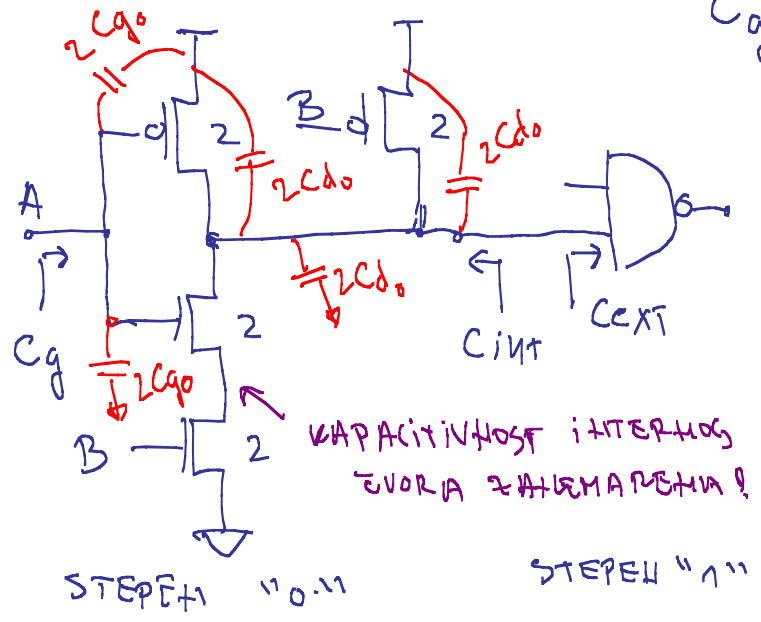 2Cgo
2
2Cdo
B
2
2Cdo
A
Cg
2
2Cdo
Cint
CEXT
2Cgo
B
2
KAPACITIVNOST INTERNOG
ČVORA ZANEMARENA!
STEPEN "0."
STEPEN "1"